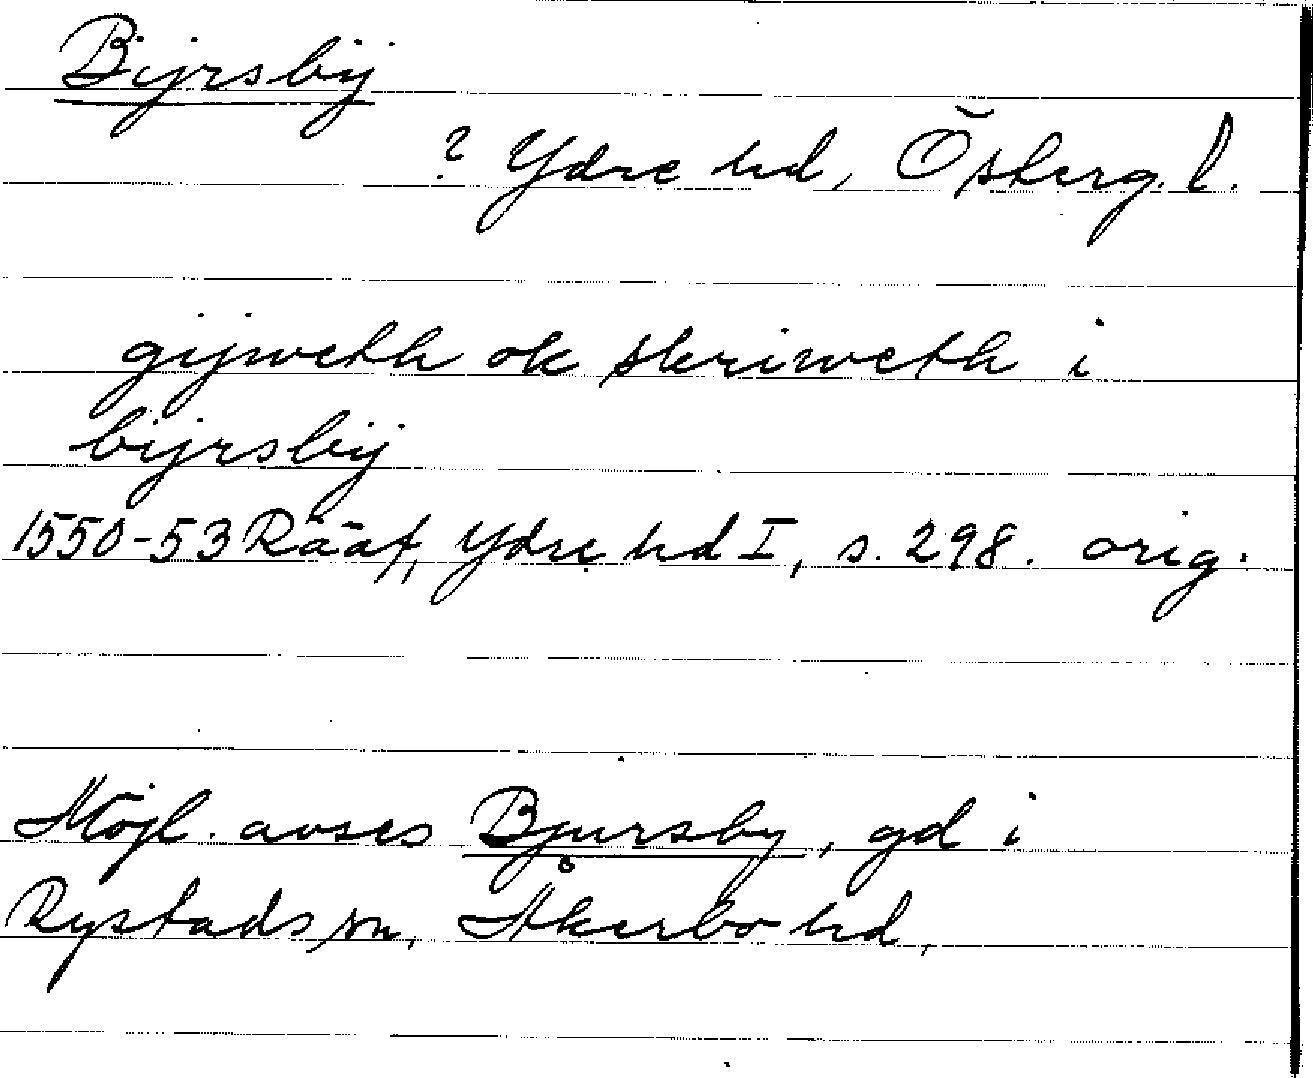 Bijrsbÿ
? Ydre hd, Österg. l.
gijweth ok skriweth i
bijrsbÿ
1550-53 Rääf, Ydre hd I, s. 298. orig.
Möjl. avses Bjursby, gd i
Rystads sn, Åkerbo hd,